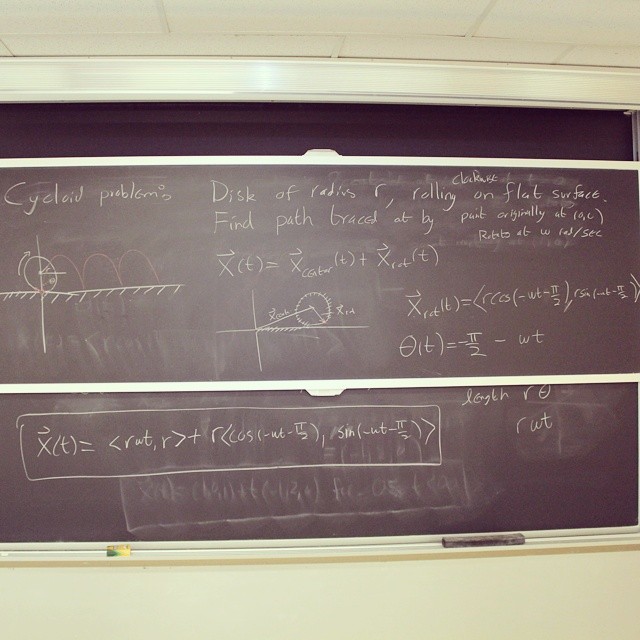 Cycloid problems
Disk of radius r, rolling clockwise on flat surface.
Find path traced at by point originally at (0,0)
Rotate at w rad/sec
X(t) = Xcenter(t) + Xrot(t)
Xcent
Xrot
Xrot(t) = <rcos(-wt-π/2), rsin(-wt-π/2)>
θ(t) = -π/2 - wt
length rθ
rwt
X(t) = <rwt, r> + r<cos(-wt-π/2), sin(-wt-π/2)>